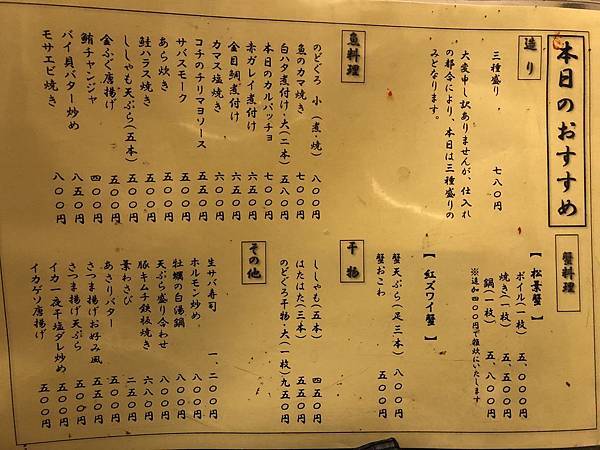 本日のおすすめ
造り
三種盛り 七八〇円
大変申し訳ありませんが、仕入れ
の都合により、本日は三種盛りの
みとなります。
魚料理
のどぐろ 小(煮・焼) 八〇〇円
魚のカマ焼き 七〇〇円
白ハタ煮付け・大(二本) 五八〇円
本日のカルパッチョ 七〇〇円
赤ガレイ煮付け 六五〇円
金目鯛煮付け 六五〇円
カマス塩焼き 六〇〇円
コチのチリマヨソース
サバスモーク 五〇〇円
あら炊き 五〇〇円
鮭ハラス焼き 五〇〇円
ししゃも天ぷら(五本) 五〇〇円
金ふぐ唐揚げ 五〇〇円
鮪チャンジャ 四〇〇円
バイ貝バター炒め 八五〇円
モサエビ焼き 八〇〇円
蟹料理
【松葉蟹】
ボイル(一枚) 五、〇〇〇円
焼き(一枚) 五、五〇〇円
鍋(一枚) 五、八〇〇円
※追加四〇〇円で雑炊にいたします
【紅ズワイ蟹】
蟹天ぷら(足三本) 八〇〇円
蟹おこわ 五〇〇円
干物
ししゃも(五本) 四五〇円
はたはた(三本) 五五〇円
のどぐろ干物・大(一枚) 九五〇円
その他
生サバ寿司 一、二〇〇円
ホルモン炒め 八〇〇円
牡蠣の白湯鍋 八〇〇円
天ぷら盛り合わせ 八〇〇円
豚キムチ鉄板焼き 六八〇円
葉わさび 二五〇円
あさりバター 五〇〇円
さつま揚げお好み風 五五〇円
さつま揚げ天ぷら 五〇〇円
イカ一夜干塩ダレ炒め 五五〇円
イカゲソ唐揚げ 五〇〇円